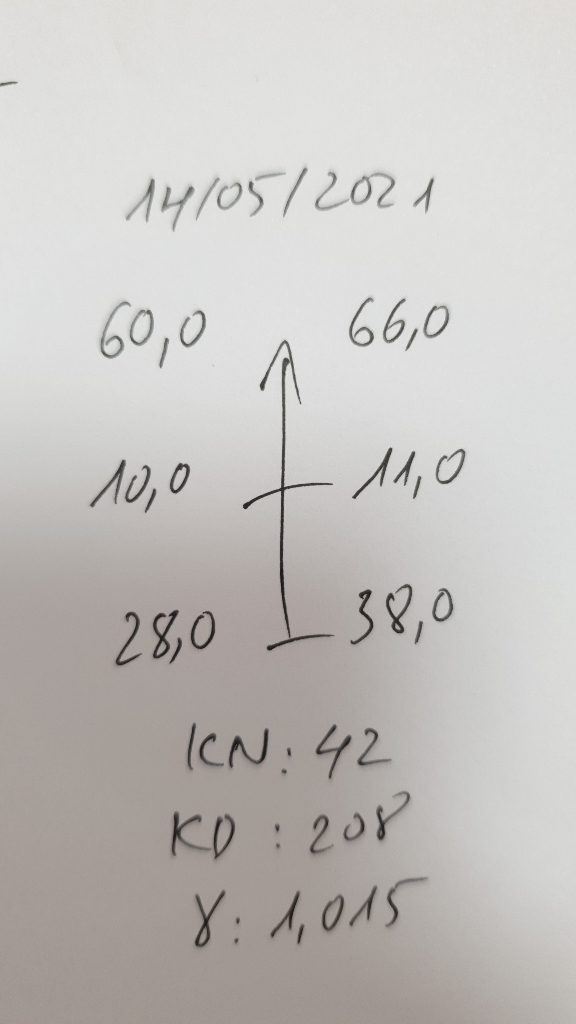 14/05/2021
60,0 66,0
10,0 11,0
28,0 38,0
KN: 42
KD : 208
γ: 1,015